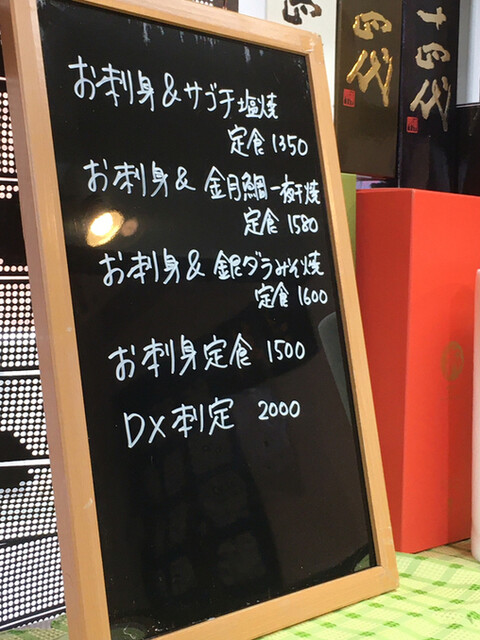 お刺身&サゴチ塩焼
定食 1350
お刺身&金目鯛一夜干焼
定食 1580
お刺身&銀ダラみそ焼
定食 1600
お刺身定食 1500
DX刺定 2000
十四代